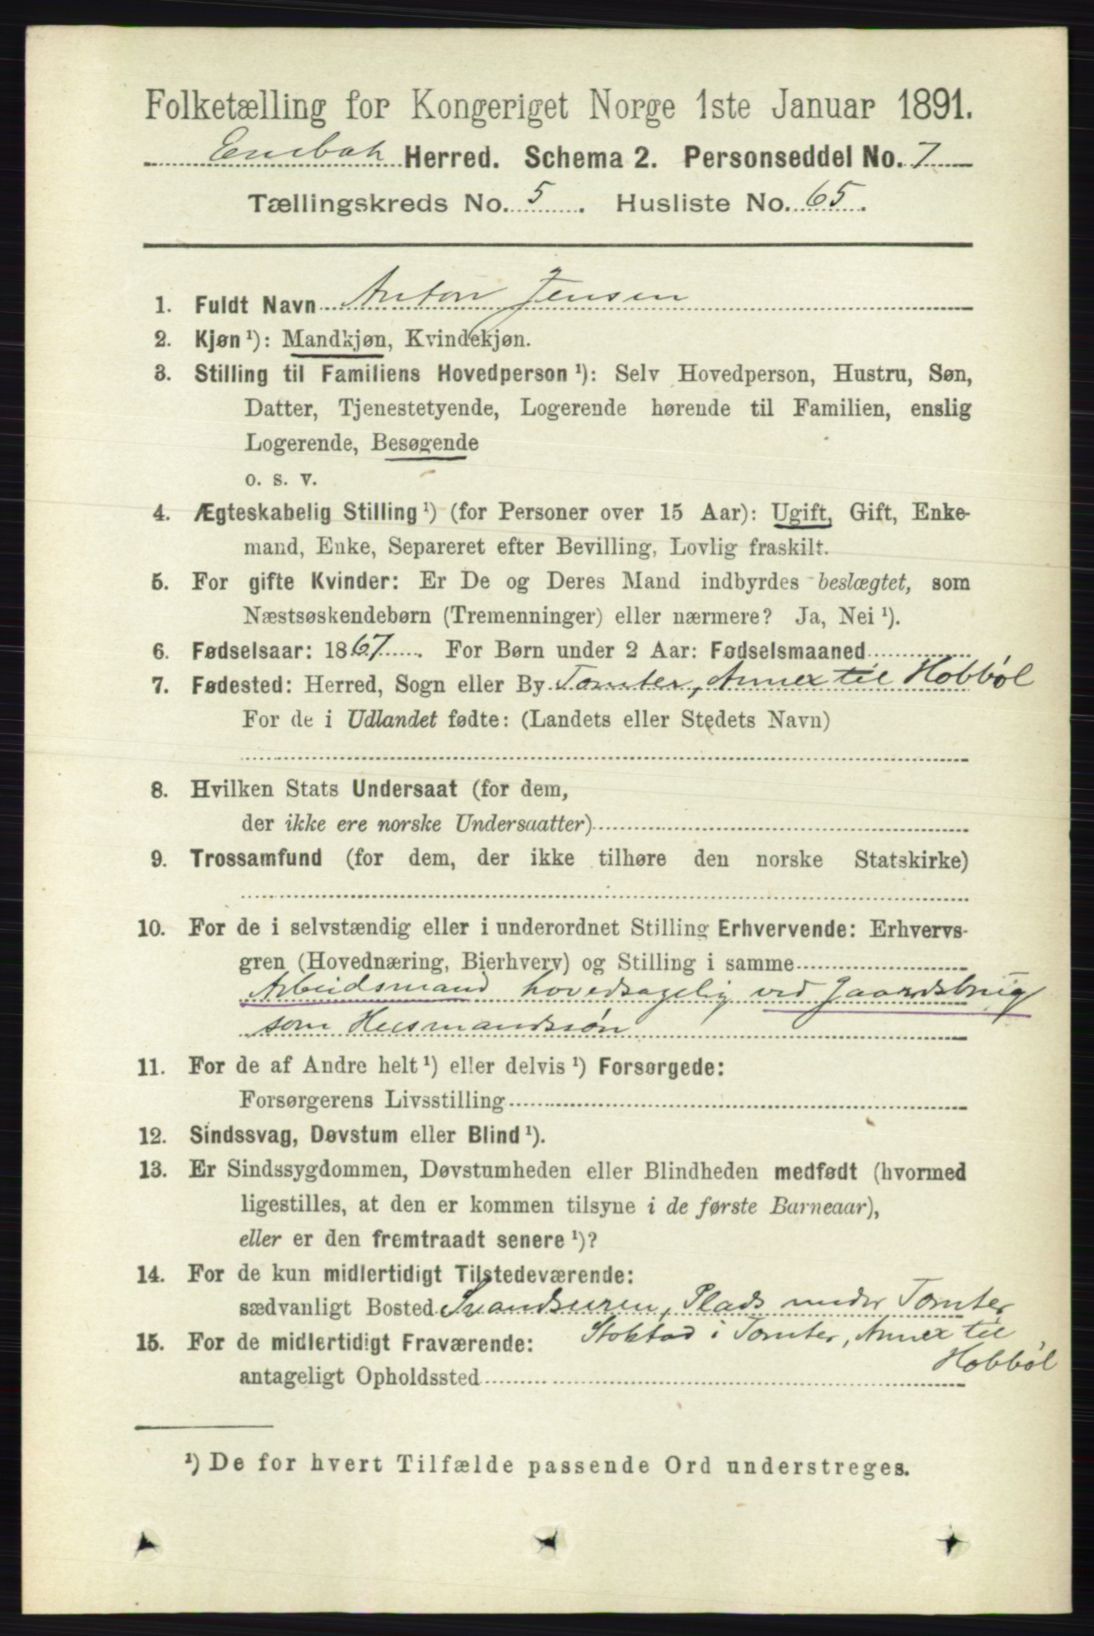 Folketælling for Kongeriget Norge 1ste Januar 1891.
Enebak Herred. Schema 2. Personseddel No. 7
Tællingskreds No. 5. Husliste No. 65.
1. Fuldt Navn Anton Jensen
2. Kjøn ¹): Mandkjøn, Kvindekjøn.
3. Stilling til Familiens Hovedperson ¹): Selv Hovedperson, Hustru, Søn,
Datter, Tjenestetyende, Logerende hørende til Familien, enslig
Logerende, Besøgende
o. s. v.
4. Ægteskabelig Stilling ¹) (for Personer over 15 Aar): Ugift, Gift, Enke-
mand, Enke, Separeret efter Bevilling, Lovlig fraskilt.
5. For gifte Kvinder: Er De og Deres Mand indbyrdes beslægtet, som
Næstsøskendebørn (Tremenninger) eller nærmere? Ja, Nei ¹).
6. Fødselsaar: 1867. For Børn under 2 Aar: Fødselsmaaned
7. Fødested: Herred, Sogn eller By Tomter, Annex til Hobbøl
For de i Udlandet fødte: (Landets eller Stedets Navn)
8. Hvilken Stats Undersaat (for dem,
der ikke ere norske Undersaatter)
9. Trossamfund (for dem, der ikke tilhøre den norske Statskirke)
10. For de i selvstændig eller i underordnet Stilling Erhvervende: Erhvervs-
gren (Hovednæring, Bierhverv) og Stilling i samme
Arbeidsmand hovedsagelig ved Gaardsbrug
som Husmandssøn
11. For de af Andre helt ¹) eller delvis ¹) Forsørgede:
Forsørgerens Livsstilling
12. Sindssvag, Døvstum eller Blind ¹).
13. Er Sindssygdommen, Døvstumheden eller Blindheden medfødt (hvormed
ligestilles, at den er kommen tilsyne i de første Barneaar),
eller er den fremtraadt senere ¹)?
14. For de kun midlertidigt Tilstedeværende:
sædvanligt Bosted Plads under Tomter
Stokstad i Tomter, Annex til
Hobbøl
15. For de midlertidigt Fraværende:
antageligt Opholdssted
¹) De for hvert Tilfælde passende Ord understreges.